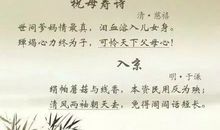 祝母寿诗
清·慈禧
世间爹妈情最真，泪血溶入儿女身。
殚竭心力终为子，可怜天下父母心！
入京
明·于谦
绢帕蘑菇与线香，本资民用反为殃；
清风两袖朝天去，免得闾阎话短长。